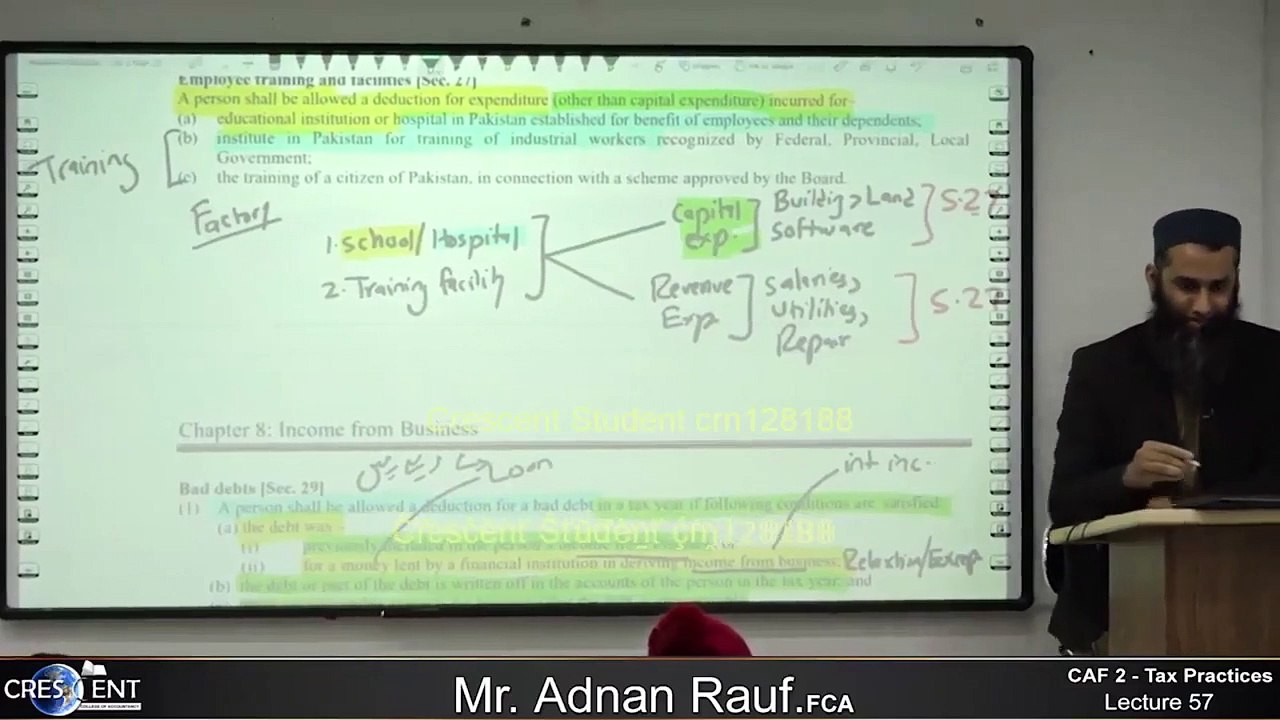 Employee training and facilities [Sec. 27]
A person shall be allowed a deduction for expenditure (other than capital expenditure) incurred for
(a) educational institution or hospital in Pakistan established for benefit of employees and their dependents;
(b) institute in Pakistan for training of industrial workers recognized by Federal, Provincial, Local
Government;
(c) the training of a citizen of Pakistan, in connection with a scheme approved by the Board.
Training
Factory
1. School/Hospital
2. Training facility
Capital
exp.
Building, Land
software
S.22
Revenue
Exp
Salaries,
utilities,
Repair
S.27
Crescent Student crn128188
Chapter 8: Income from Business
Loan
int inc.
Bad debts [Sec. 29]
(1) A person shall be allowed a deduction for a bad debt in a tax year if following conditions are satisfied
(a) the debt was
Crescent Student crn128188
(i) previously included in the person's income
(ii) for a money lent by a financial institution in deriving income from business;
(b) the debt or part of the debt is written off in the accounts of the person in the tax year; and
CRESCENT
COLLEGE OF ACCOUNTANCY
Mr. Adnan Rauf.FCA
CAF 2 - Tax Practices
Lecture 57